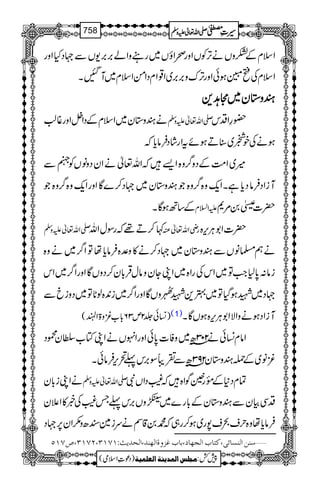 سیرتِ مصطفیٰ صلی اللہ تعالیٰ علیہ وسلم 758
اسلام کے لشکروں نے ترکوں اور صحراؤں میں رہنے والے بربریوں سے جہاد کیا اور
اسلام کی فتح مبین ہوئی اور ترک و بربری اقوام دامن اسلام میں آ گئیں۔
ہندوستان میں مجاہدین
حضور اقدس صلی اللہ تعالیٰ علیہ وسلم نے ہندوستان میں اسلام کے داخل اور غالب
ہونے کی خوشخبری سناتے ہوئے یہ ارشاد فرمایا کہ
میری امت کے دو گروہ ایسے ہیں کہ اللہ تعالیٰ نے ان دونوں کو جہنم سے
آزاد فرما دیا ہے۔ ایک وہ گروہ جو ہندوستان میں جہاد کرے گا اور ایک وہ گروہ جو
حضرت عیسیٰ بن مریم علیہ السلام کے ساتھ ہوگا۔
حضرت ابو ہریرہ رضی اللہ تعالیٰ عنہ کہا کرتے تھے کہ رسول اللہ صلی اللہ تعالیٰ علیہ وسلم
نے ہم مسلمانوں سے ہندوستان میں جہاد کرنے کا وعدہ فرمایا تھا تو اگر میں نے وہ
زمانہ پا لیا جب تو میں اس کی راہ میں اپنی جان و مال قربان کر دوں گا اور اگر میں اس
جہاد میں شہید ہو گیا تو میں بہترین شہید ٹھہروں گا اور اگر میں زندہ لوٹا تو میں دوزخ سے
آزاد ہونے والا ابو ہریرہ ہوں گا۔ (1) (نسائی جلد ۲ ص ۶۳ باب غزوۃ الہند)
امام نسائی نے ۳۰۲ھ میں وفات پائی اور انہوں نے اپنی کتاب سلطان محمود
غزنوی کے حملہ ہندوستان ۳۹۲ھ سے تقریباً سو برس پہلے تحریر فرمائی۔
تمام دنیا کے مؤرخین گواہ ہیں کہ غیب داں نبی صلی اللہ تعالیٰ علیہ وسلم نے اپنی زبان
قدسی بیان سے ہندوستان کے بارے میں سینکڑوں برس پہلے جس غیب کی خبر کا اعلان
فرمایا تھا وہ حرف بحرف پوری ہو کر رہی کہ محمد بن قاسم نے سرزمین سندھ و مکران پر جہاد
1……سنن النسائی، کتاب الجھاد، باب غزوۃ الھند، الحدیث: ۳۱۷۱، ۳۱۷۲، ص ۵۱۷
پیش کش: مجلس المدینۃ العلمیۃ (دعوتِ اسلامی)